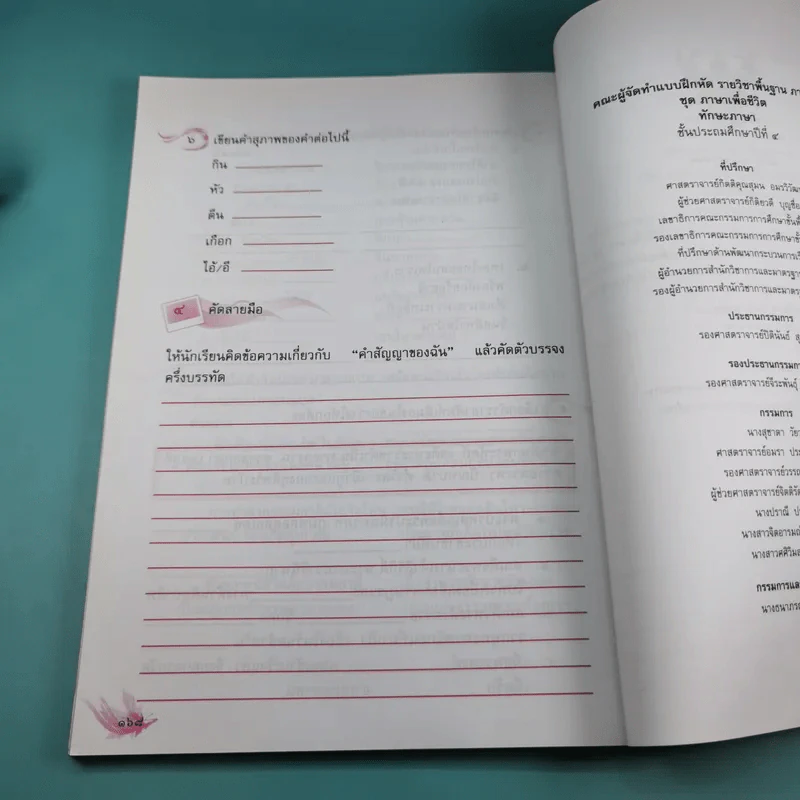 ๖ เขียนคำสุภาพของคำต่อไปนี้
กิน
หัว
ตีน
เกือก
ไอ้/อี
๔ คัดลายมือ
ให้นักเรียนคิดข้อความเกี่ยวกับ “คำสัญญาของฉัน” แล้วคัดตัวบรรจง
ครึ่งบรรทัด
๑๖๘
คณะผู้จัดทำแบบฝึกหัด รายวิชาพื้นฐาน
ชุด ภาษาเพื่อชีวิต
ทักษะภาษา
ชั้นประถมศึกษาปีที่ ๔
ที่ปรึกษา
ศาสตราจารย์กิตติคุณสุมน
ผู้ช่วยศาสตราจารย์กิติยวดี
เลขาธิการคณะกรรมการการศึกษา
รองเลขาธิการคณะกรรมการการศึกษา
ที่ปรึกษาด้านพัฒนากระบวนการ
ผู้อำนวยการสำนักวิชาการและ
รองผู้อำนวยการสำนักวิชาการและ
ประธานกรรมการ
รองศาสตราจารย์ปิตินันธ์
รองประธานกรรม
รองศาสตราจารย์จีระพันธุ์
กรรมการ
นางสุชาดา
ศาสตราจารย์อมรา
รองศาสตราจารย์
ผู้ช่วยศาสตราจารย์
นางปราณี
นางสาวจิตอารมณ์
นางสาว
กรรมการและ